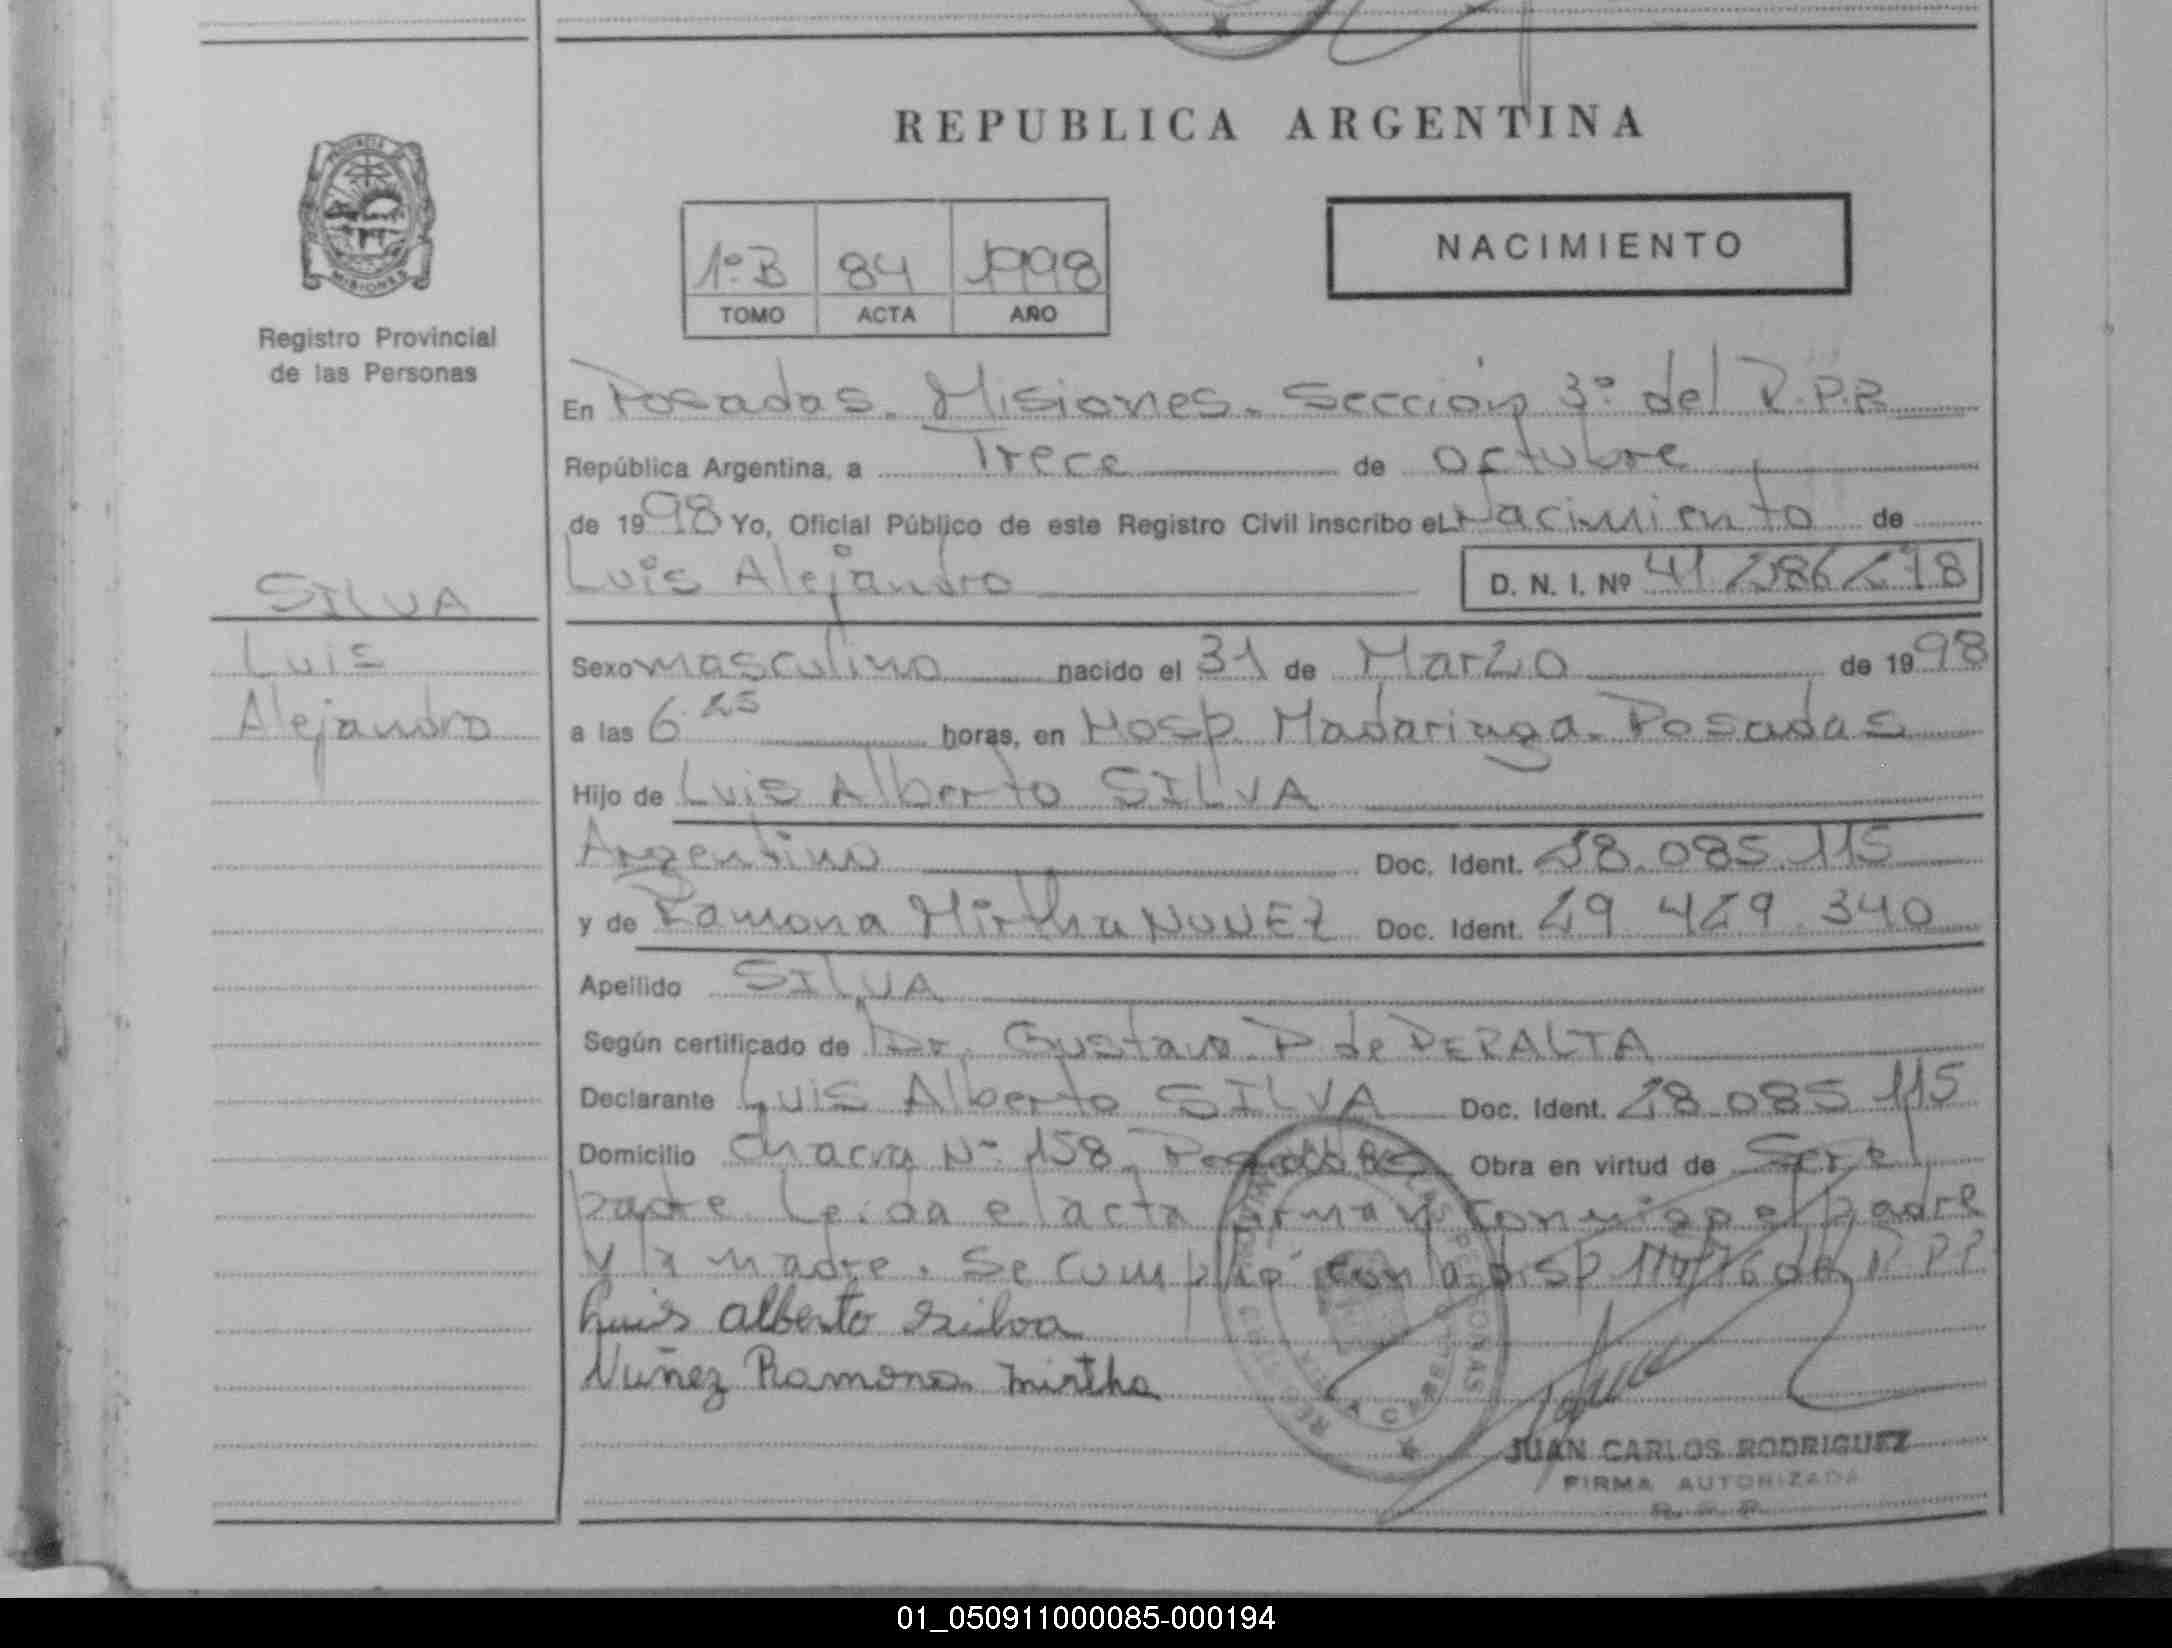 REPUBLICA ARGENTINA
PROVINCIA DE
MISIONES
Registro Provincial
de las Personas
1º B 84 1998
TOMO ACTA AÑO
NACIMIENTO
En Posadas. Misiones. Sección 3º del R.P.P.
República Argentina, a Trece de octubre
de 1998 Yo, Oficial Público de este Registro Civil inscribo el Nacimiento de
Luis Alejandro D. N. I. Nº
SILVA
Luis
Alejandro
Sexo masculino nacido el 31 de Marzo de 1998
a las 6 25 horas, en Hosp. Madariaga. Posadas
Hijo de Luis Alberto SILVA
Argentino Doc. Ident. 28.085.115
y de Ramona Mirtha NUÑEZ Doc. Ident. 29 429.340
Apellido SILVA
Según certificado de Dr. Gustavo P de PERALTA
Declarante Luis Alberto SILVA Doc. Ident. 28.085 115
Domicilio chacra Nº 158. Posadas Obra en virtud de Ser el
padre. Leída el acta firman conmigo el padre
y la madre. Se cumplió con la Disp R.P.P.
Luis alberto Silva
Nuñez Ramona mirtha
JUAN CARLOS RODRIGUEZ
FIRMA AUTORIZADA
R. P. P.
01_050911000085-000194